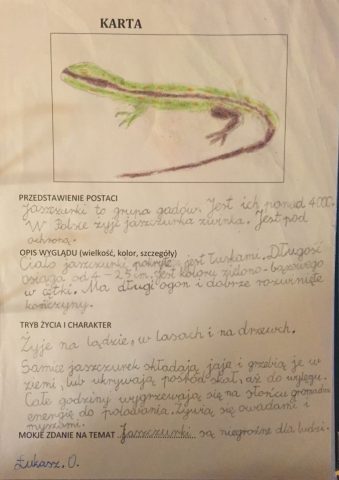 KARTA
PRZEDSTAWIENIE POSTACI
Jaszczurki to grupa gadów. Jest ich ponad 4000.
W Polsce żyje jaszczurka zwinka. Jest pod
ochroną.
OPIS WYGLĄDU (wielkość, kolor, szczegóły)
Ciało jaszczurki pokryte jest łuskami. Długość
osiąga od 4 - 25 cm. Jest koloru zielono-brązowego
w cętki. Ma długi ogon i dobrze rozwinięte
kończyny.
TRYB ŻYCIA I CHARAKTER
Żyje na lądzie, w lasach i na drzewach.
Samice jaszczurek składają jaja i grzebią je w
ziemi, lub ukrywają pośród skał, aż do wylęgu.
Całe godziny wygrzewają się na słońcu gromadząc
energię do polowania. Żywią się owadami i
myszami.
MOKJE ZDANIE NA TEMAT Jaszczurki są niegroźne dla ludzi.
Łukasz. O.